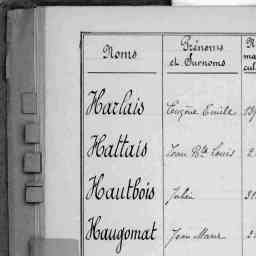 Noms Prénoms et Surnoms
Harlais Eugène Emile
Hattais Jean Bte Louis
Hautbois Julien
Haugomat Jean Marie